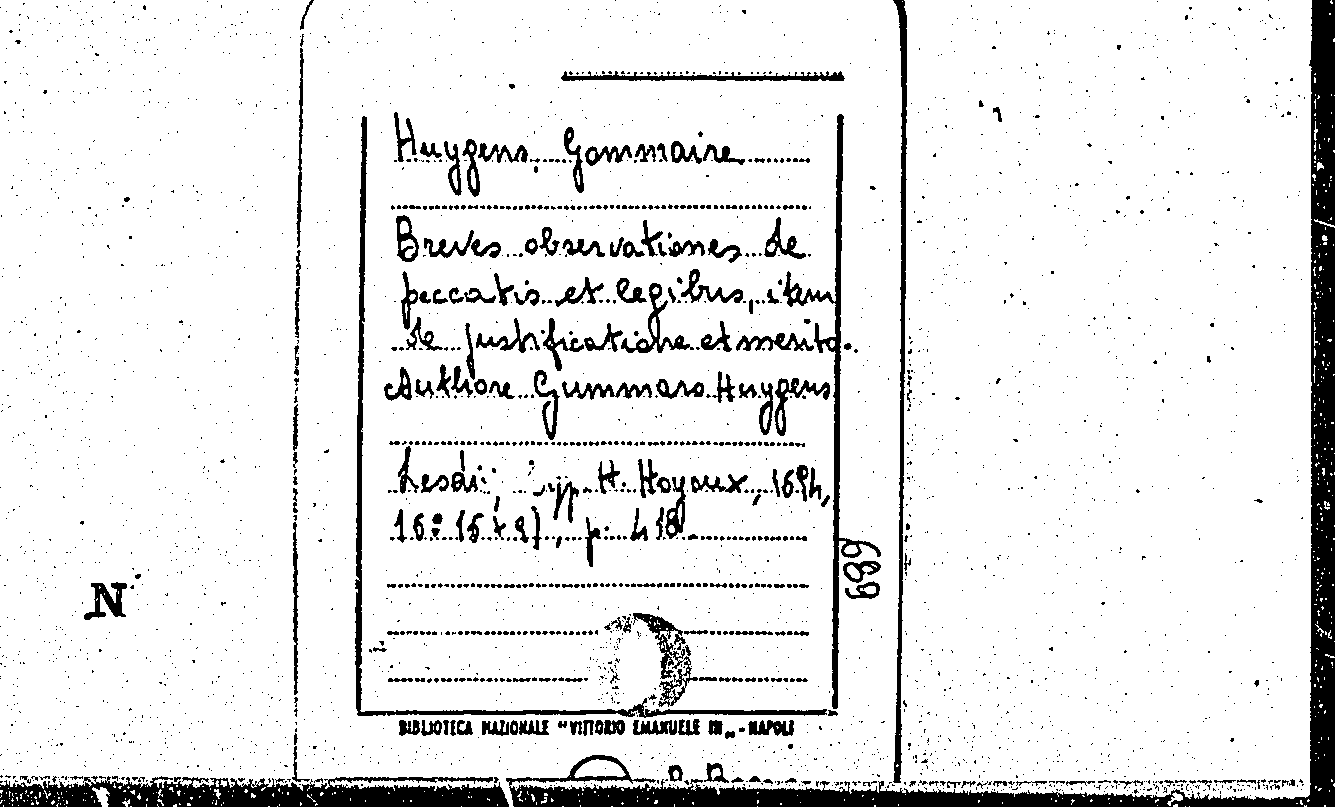 Huygens, Gommaire
Breves observationes de
peccatis et legibus, item
de justificatione et merito.
Authore Gummaro Huygens
typ. H. Hoyoux, 1694,
16: 15 + 9), p. 418.
689
N
BIBLIOTECA NAZIONALE "VITTORIO EMANUELE III" - NAPOLI